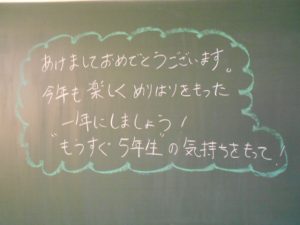 あけましておめでとうございます。
今年も楽しくめりはりをもった
一年にしましょう!
"もうすぐ5年生"の気持ちをもって!